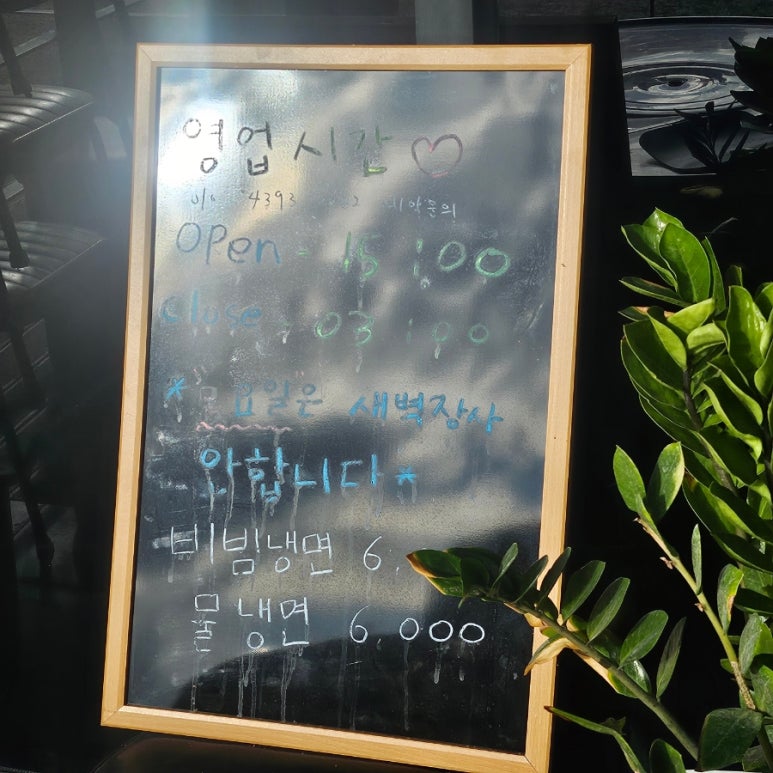 영업시간 ♡
4393 예약문의
Open - 15:00
close - 03:00
* 요일은 새벽장사
안합니다 *
비빔냉면 6,
물냉면 6,000